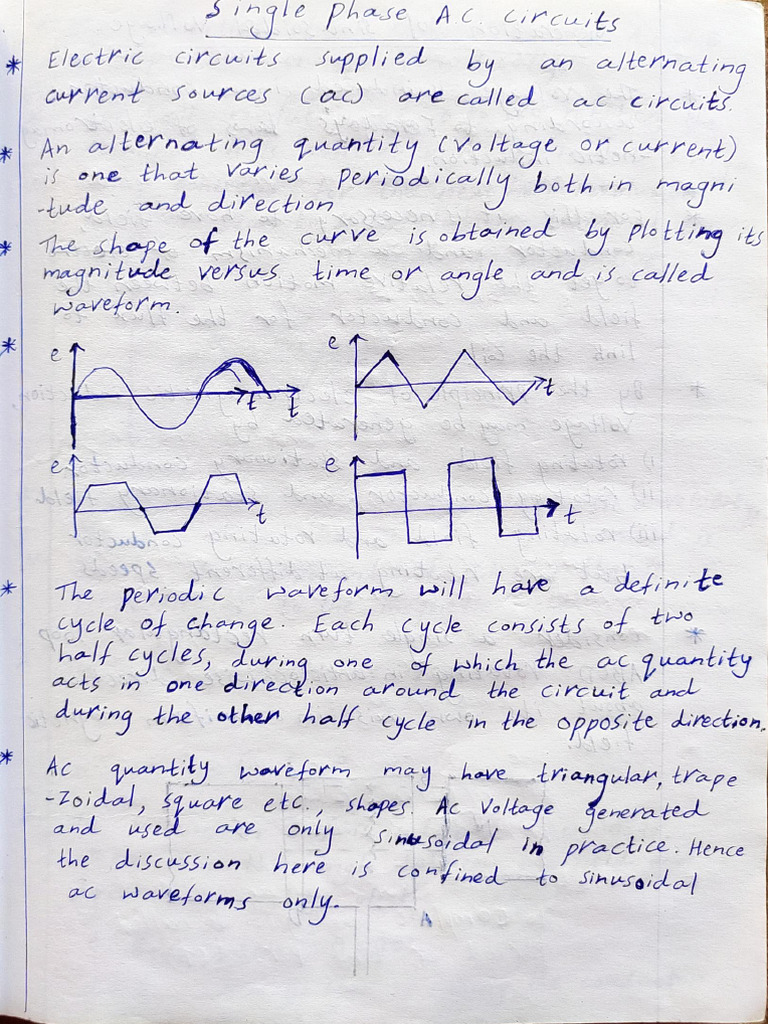 Single phase AC. circuits
* Electric circuits supplied by an alternating
current sources (ac) are called ac circuits.
* An alternating quantity (Voltage or current)
is one that varies periodically both in magni
-tude and direction
* The shape of the curve is obtained by plotting its
magnitude versus time or angle and is called
waveform.
*
e t t
e t
e t
e t
* The periodic waveform will have a definite
cycle of change. Each cycle consists of two
half cycles, during one of which the ac quantity
acts in one direction around the circuit and
during the other half cycle in the opposite direction.
* Ac quantity waveform may have triangular, trape
-zoidal, square etc., shapes. Ac Voltage generated
and used are only sinusoidal in practice. Hence
the discussion here is confined to sinusoidal
ac waveforms only.